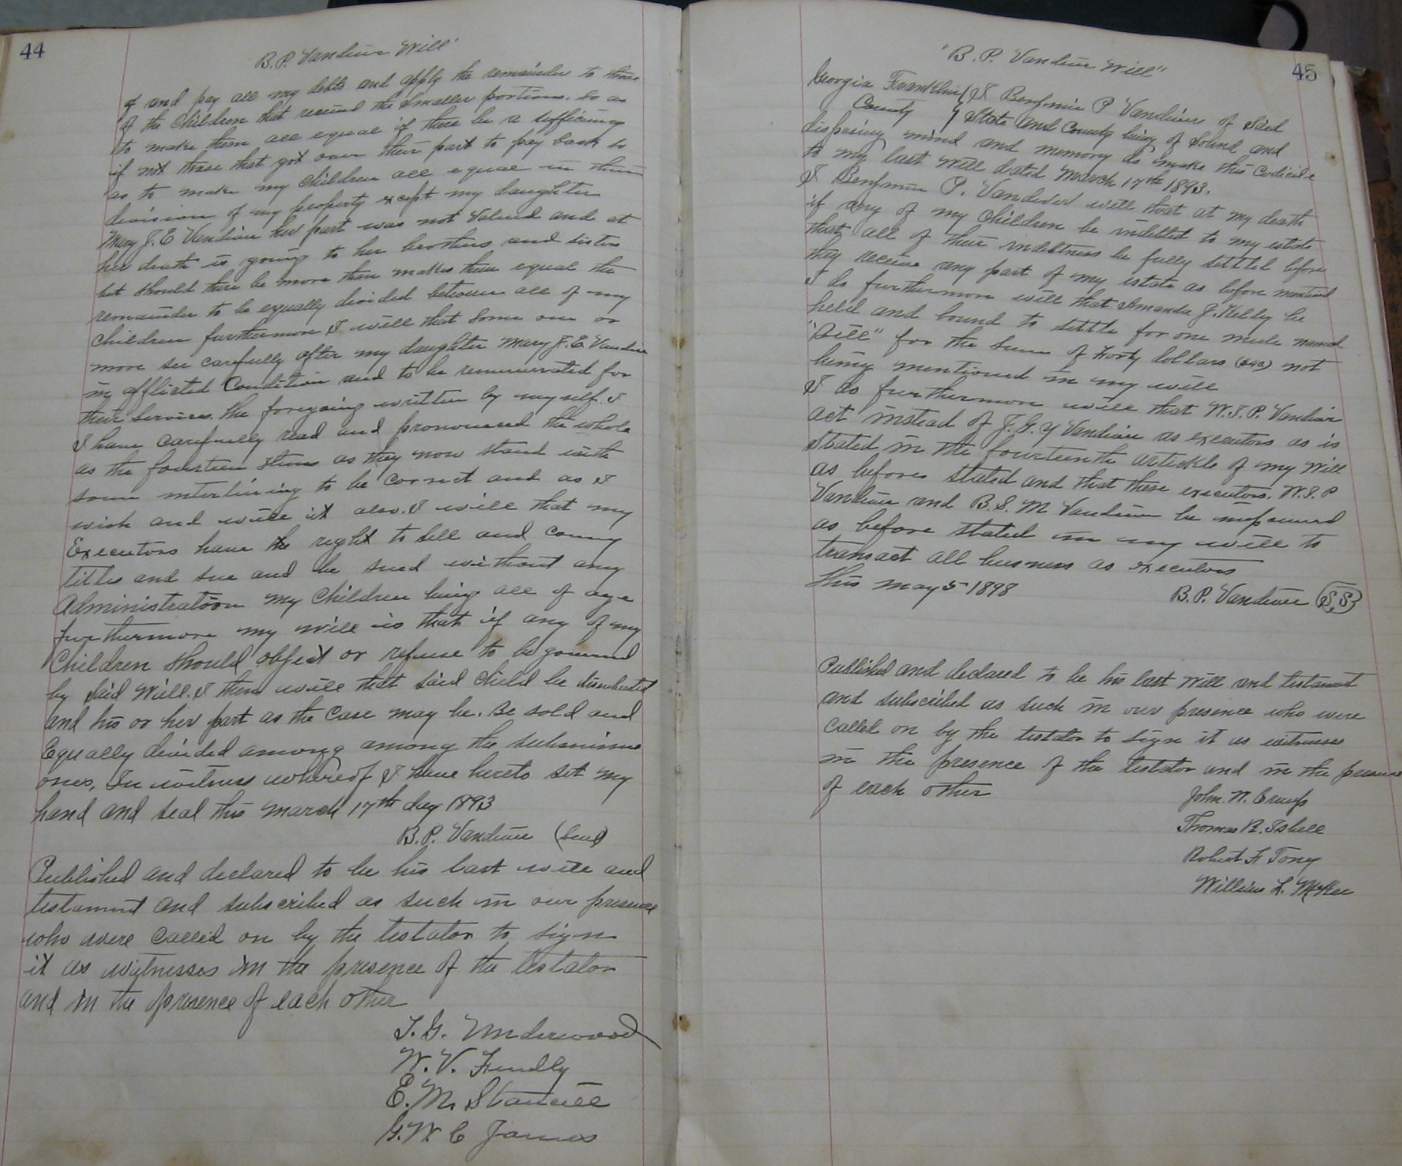 44
B.P. Vandiver Will"
of and pay all my debts and apply the remainder to those
of the Children that received the smaller portions. So as
to make them all equal if there be a sufficiency
if not those that got over their part to pay back so
as to make my children all equal in their
division of my property except my daughter
Mary J. E Vandiver her part was not valued and at
her death is going to her brothers and sisters
but should there be more then makes them equal the
remainder to be equally divided between all of my
Children furthermore I will that some one or
more see carefully after my daughter Mary J. E. Vandiver
in afflicted Condition and to be renumerated for
their services. The foregoing written by myself. I
I have carefully read and pronounced the whole
as the fourteen items as they now stand with
some interlining to be correct and as I
wish and will it also. I will that my
Executors have the right to sell and convey
titles and sue and be sued without any
Administration my Children being all of age
furthermore my will is that if any of my
Children should object or refuse to be governed
by said Will. I then will that said child be disinherited
and his or her part as the case may be. Be sold and
Equally divided among among the submissive
ones. In witness whereof I have hereto set my
hand and seal this March 17th day 1893
B.P. Vandiver (Seal)
Published and declared to be his last will and
testament and subscribed as such in our presence
who were called on by the testator to sign
it as witnesses in the presence of the testator
and in the presence of each other
T. G. Underwood
W. V. Findly
E. M. Stancill
G. W. C James
"B. P. Vandiver Will"
45
Georgia Franklin I Benjmin P Vandiver of said
County State and County being of Sound and
disposing mind and memory do make this Codicile
to my last will dated March 17th 1893.
I Benjmin P. Vandiver will that at my death
if any of my Children be indebted to my estate
that all of their indebtness be fully settled before
they receive any part of my estate as before mentioned
I do furthermore will that Amanda J. Kelly be
held and bound to settle for one mule named
"Bill" for the sum of Forty dollars not
being mentioned in my will
I do furthermore will that W. S. P. Vandiver
act instead of J. G. Y Vandiver as executors as is
Stated in the fourteenth artickle of my Will
as before stated and that these executors. W. S. P
Vandiver and B. S. M Vandiver be
as before stated in my will to
transact all business as executors
this May 5 1898
B.P. Vandiver (S,S)
Published and declared to be his last Will and testament
and subscribed as such in our presence who were
called on by the testator to sign it as witnesses
in the presence of the testator and in the presence
of each other
John W. Crump
Thomas R. Isbell
Robert F. Toney
William L. McKee